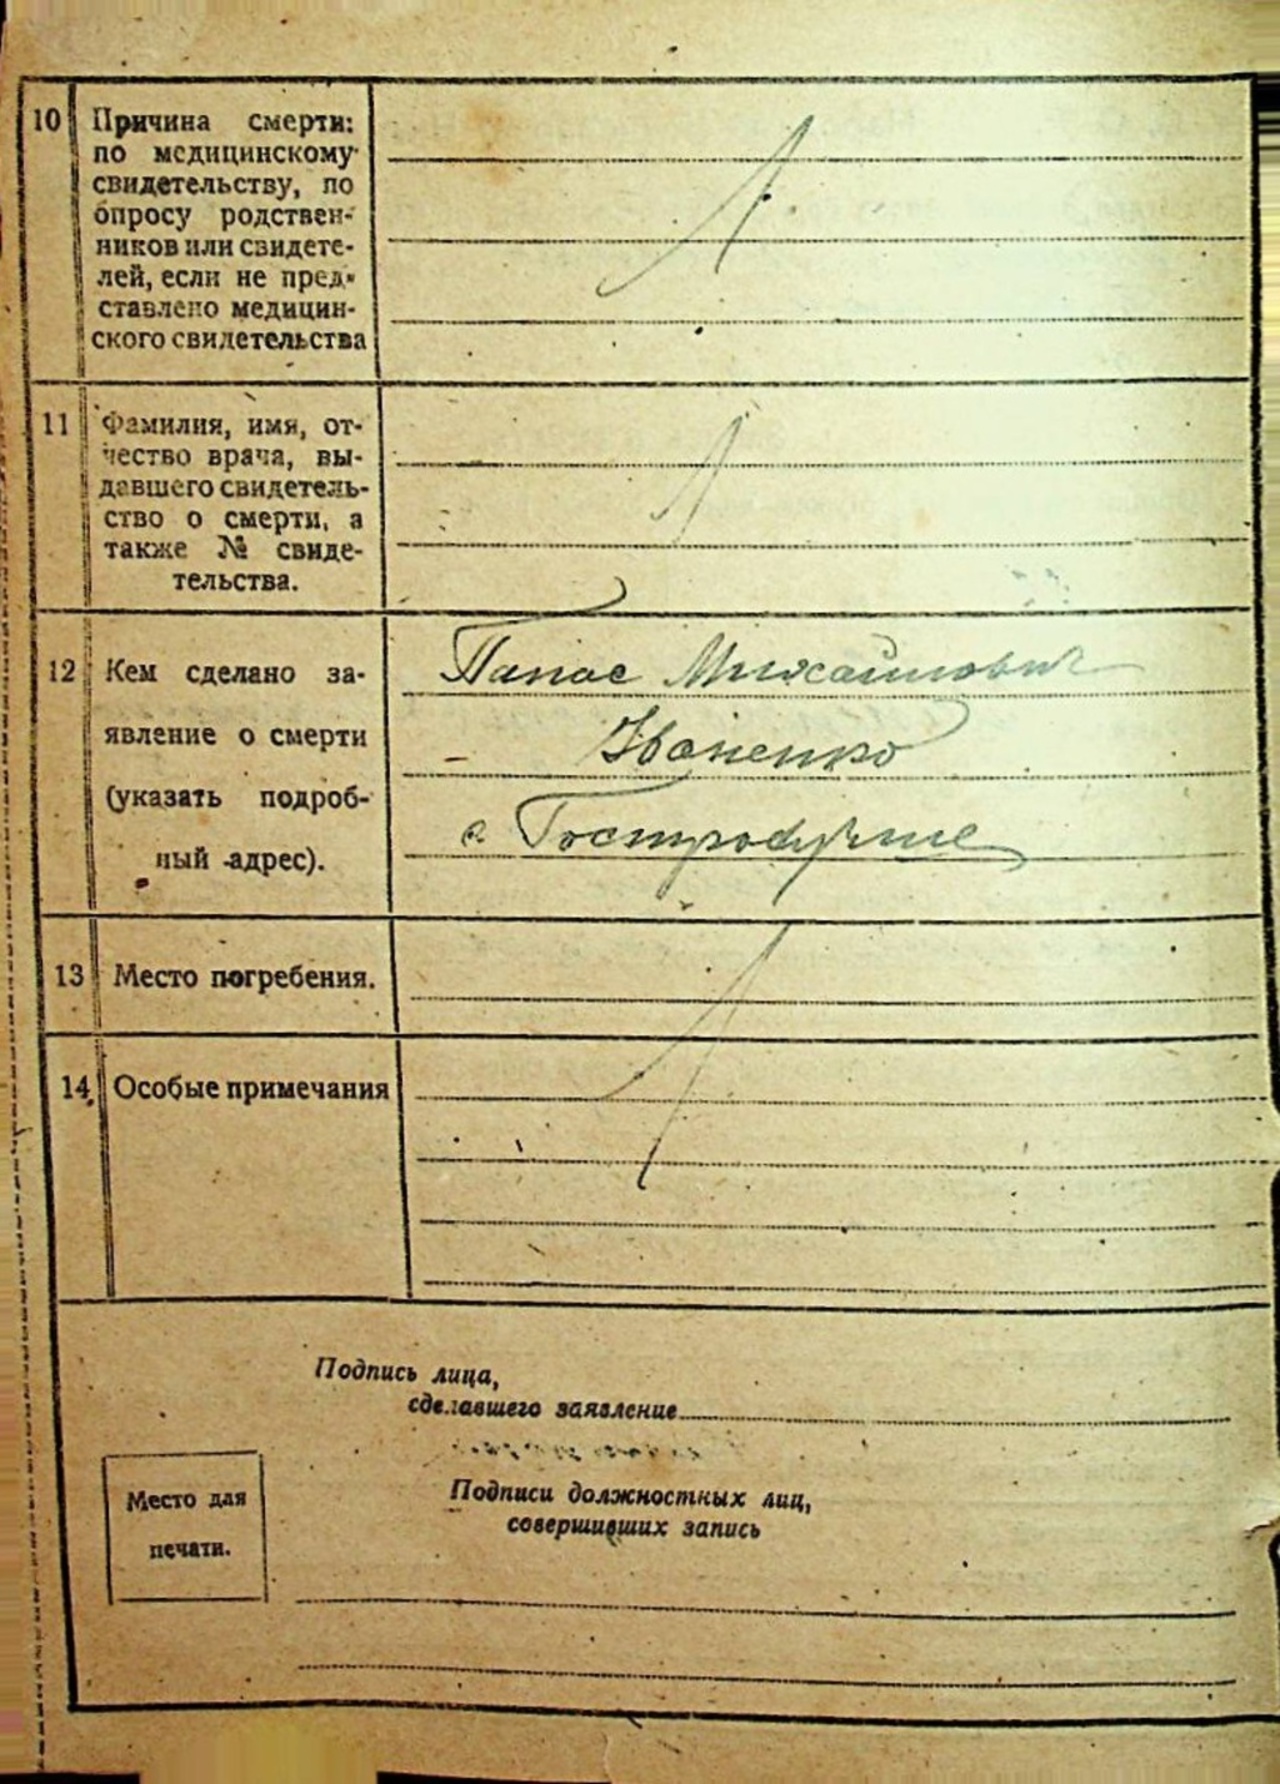 10 Причина смерти:
по медицинскому
свидетельству, по
опросу родствен-
ников или свидете-
лей, если не пред-
ставлено медицин-
ского свидетельства
11 Фамилия, имя, от-
чество врача, вы-
давшего свидетель-
ство о смерти, а
также № свиде-
тельства.
12 Кем сделано за-
явление о смерти
(указать подроб-
ный адрес).
Панас Михайлович
Иваненко
с.
13 Место погребения.
14 Особые примечания
Подпись лица,
сделавшего заявление
Место для
печати.
Подписи должностных лиц,
совершивших запись